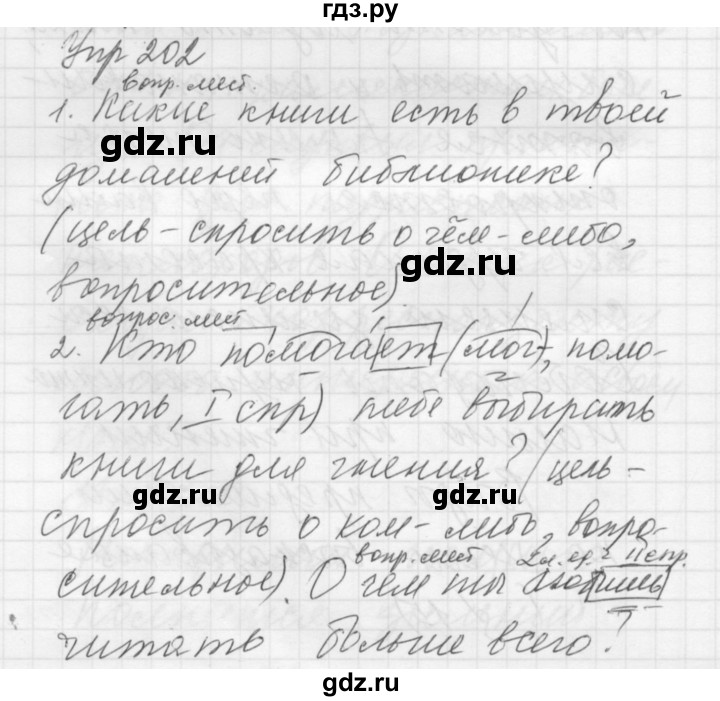 гдз.ру
Упр 202
вопр. мест.
1. Какие книги есть в твоей
gdz.ru
домашней библиотеке?
(цель - спросить о чём-либо,
gdz.ru
вопросительное)
вопрос. мест
2. Кто помогает (мог, помо-
гать, I спр) тебе выбирать
книги для чтения? (цель -
gdz.ru gdz.ru
спросить о ком-либо, вопро-
вопр. мест 2 л. ед. ч. II спр.
сительное). О чем ты любишь
читать больше всего?
gdz.ru